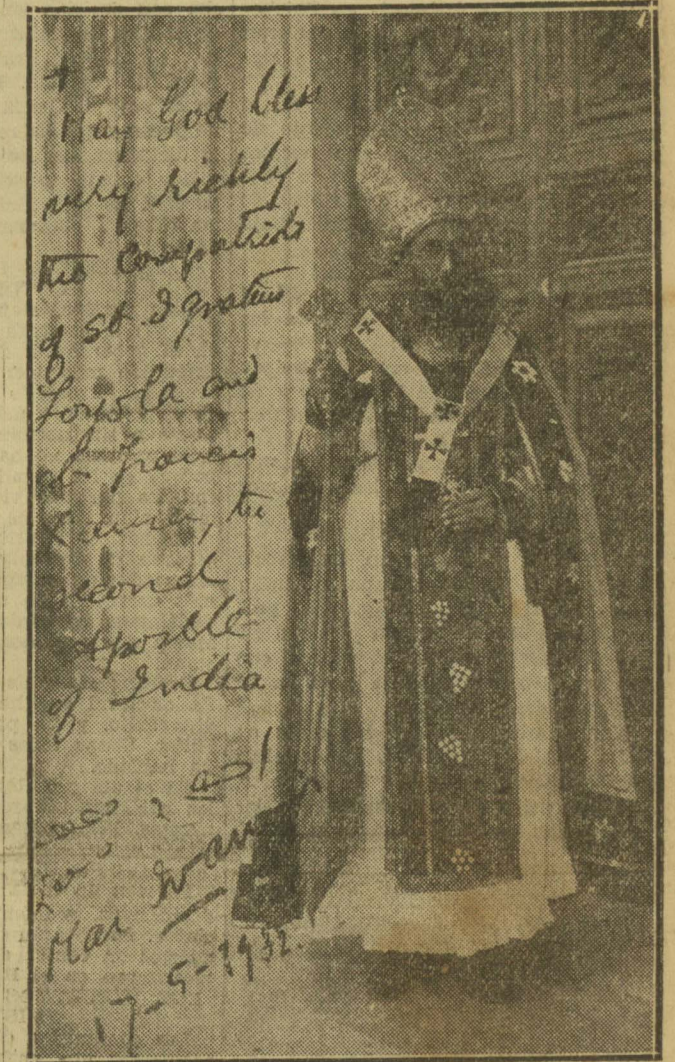 +
May God bless
very richly
the compatriots
of St. Ignatius
Loyola and
St Francis
Xavier, the
second
Apostle
of India
Mar Ivanios
17-5-1932.